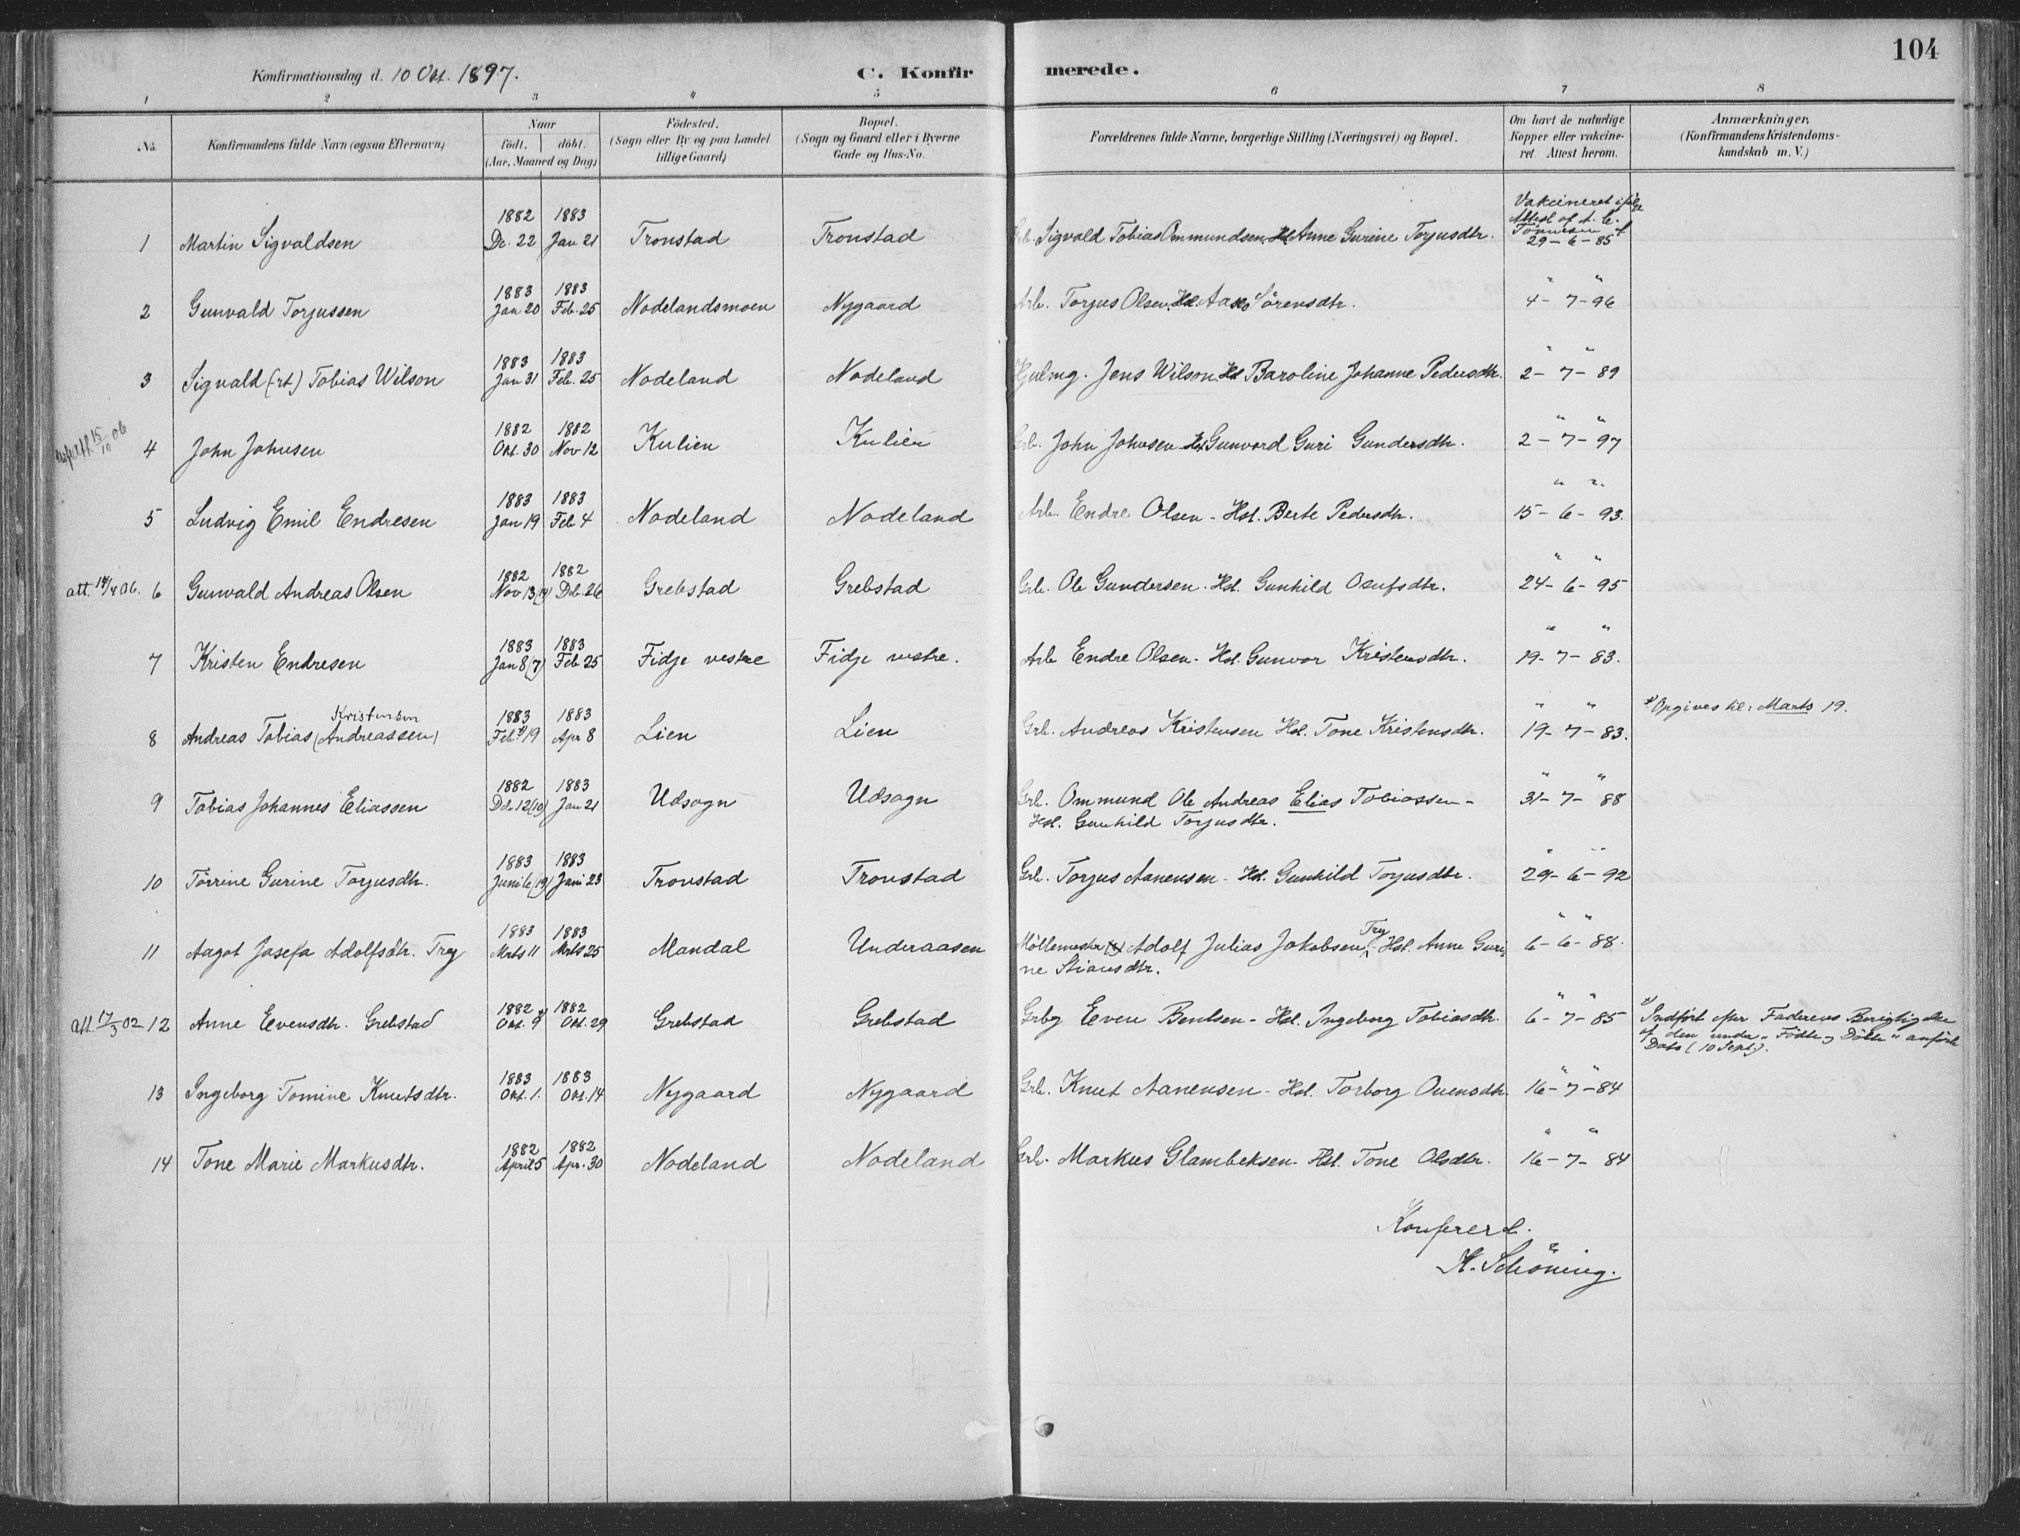 Konfirmationsdag d. 10 Okt. 1897. C. Konfirmerede. 104
1 2 3 4 5 6 7 8
No. Konfirmandens fulde Navn (ogsaa Efternavn) Naar født. døbt. (Aar, Maaned og Dag) Fødested. (Sogn eller By og paa Landet tillige Gaard) Bopæl. (Sogn og Gaard eller i Byerne Gade og Hus-No. Forældrenes fulde Navne, borgerlige Stilling (Næringsvei) og Bopæl. Om havt de naturlige Kopper eller vakcineret Attest herom. Anmærkninger. (Konfirmandens Kristendomskundskab m. V.)
1 Martin Sigvaldsen 1882 Dc. 22 1883 Jan 21 Tronstad Tronstad Sigvald Tobias Ommundsen Hst Anne Gurine Torjusdtr. Vakcineret Attest af 29-6-85
2 Gunvald Torjussen 1883 Jan 20 1883 Feb. 25 Nodelandsmoen Nygaard Arb. Torjus Olsen. Hst. Sörensdtr. " " 4-7-96
3 Sigvald (-rt) Tobias Wilson 1883 Jan 31 1883 Feb. 25 Nodeland Nodeland Hjulmg. Jens Wilson Hst Baroline Johanne Pedersdtr. " " 2-7-89
15/10 06 4 John Johnsen 1882 Okt. 30 1882 Nov 12 Kulien Kulien Grb. John Johnsen Hst Gunvord Guri Gundersdtr. " " 2-7-97
5 Ludvig Emil Endresen 1883 Jan 19 1883 Feb 4 Nodeland Nodeland Arb. Endre Olsen - Hst. Berte Pedersdtr. " " 15-6-93.
att. 14/4 06. 6 Gunvald Andreas Olsen 1882 Nov 13 1882 Dcb. 26 Grebstad Grebstad Grb. Ole Gundersen. Hst. Gunhild Osufsdtr. " " 24-6-95
7 Kristen Endresen 1883 Jan 8 (7) 1883 Feb 25 Fidje vestre Fidje vestre. Arb Endre Olsen - Hst. Gunvor Kristensdtr. " " 19-7-83.
8 Andreas Tobias Kristensen (Andreassen) 1883 Feb. 19 1883 Apr 8 Lien Lien Grb. Andreas Kristensen Hst. Tone Kristensdtr. " " 19-7-83. Opgives til: Marts 19.
9 Tobias Johannes Eliassen 1882 Dcb 12 (10) 1883 Jan 21 Udsogn Udsogn Grb. Ommund Ole Andreas Elias Tobiassen -
Hst. Gunhild Torjusdtr. " " 31-7-88
10 Törrine Gurine Torjusdtr. 1883 Juni 6 (19) 1883 Juni 23 Tronstad Tronstad Grb. Torjus Aanensen - Hst. Gunhild Torjusdtr. " " 29-6-92
11 Aagot Josefa Adolfsdtr. Trey 1883 Mrts 11 1883 Mrts 25 Mandal Underaasen Möllemester Adolf Julius Jakobsen Trey Hst. Anne Guri-
ne Stiansdtr. " " 6-6-88.
att. 17/3 02 12 Anne Evensdtr. Grebstad 1882 Okt. 9 1882 Okt. 29 Grebstad Grebstad Grbg Even Bentsen - Hst. Ingeborg Tobiasdtr. " " 6-7-85 Indført efter Faderens Berigtigelse
af den under "Födte og Döbte" anførte
Dato (10 Sept.).
13 Ingeborg Tomine Knutsdtr. 1883 Okt. 1. 1883 Okt. 14 Nygaard Nygaard Grb. Knut Aanensen - Hst. Torborg Ouensdtr. " " 16-7-84
14 Tone Marie Markusdtr. 1882 April 5 1882 Apr. 30 Nodeland Nodeland Grb. Markus Glambeksen - Hst. Tone Olsdtr. " " 16-7-84
Konfererl.
H. Schöning.